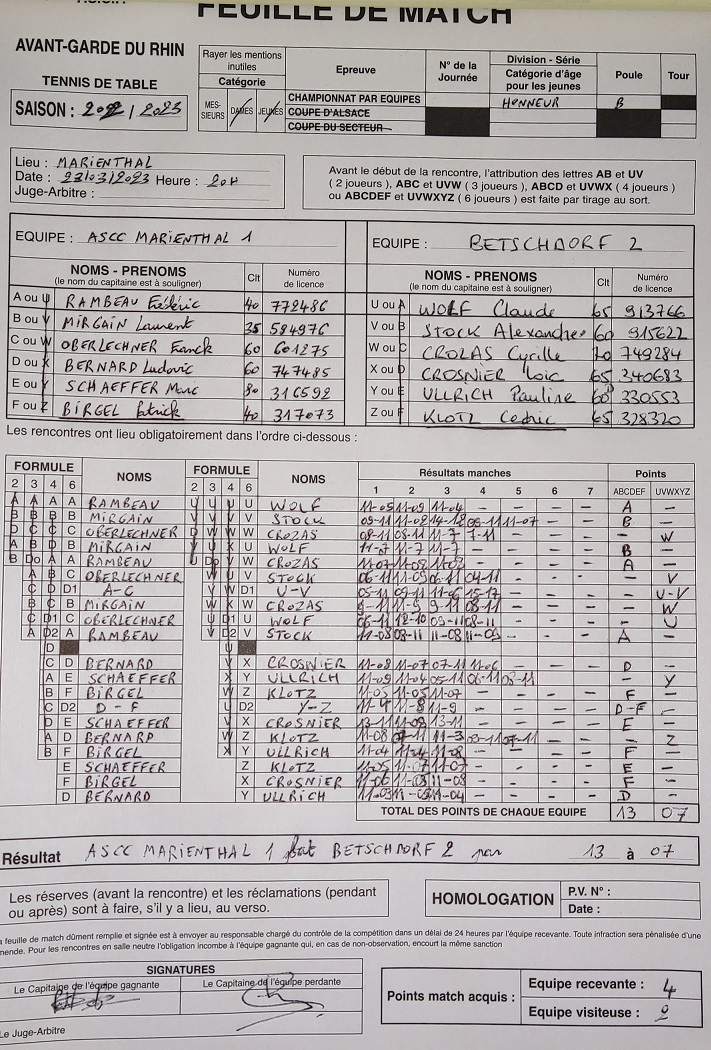 FEUILLE DE MATCH
AVANT-GARDE DU RHIN
TENNIS DE TABLE
SAISON : 2022 / 2023
Rayer les mentions inutiles
Catégorie
MES-SIEURS DAMES JEUNES
Epreuve
CHAMPIONNAT PAR EQUIPES
COUPE D'ALSACE
COUPE DU SECTEUR
N° de la Journée
Division - Série
Catégorie d'âge pour les jeunes
HONNEUR
Poule
B
Tour
Lieu : MARIENTHAL
Date : 23/03/2023 Heure : 20H
Juge-Arbitre :
Avant le début de la rencontre, l'attribution des lettres AB et UV
( 2 joueurs ), ABC et UVW ( 3 joueurs ), ABCD et UVWX ( 4 joueurs )
ou ABCDEF et UVWXYZ ( 6 joueurs ) est faite par tirage au sort.
EQUIPE : ASCC MARIENTHAL 1
NOMS - PRENOMS (le nom du capitaine est à souligner) Clt Numéro de licence
A ou U RAMBEAU Frédéric 40 772486
B ou V MIRGAIN Laurent 35 584976
C ou W OBERLECHNER Franck 60 601275
D ou X BERNARD Ludovic 60 747485
E ou Y SCHAEFFER Marc 80 316592
F ou Z BIRGEL Patrick 40 317073
EQUIPE : BETSCHDORF 2
NOMS - PRENOMS (le nom du capitaine est à souligner) Clt Numéro de licence
U ou A WOLF Claude 65 913766
V ou B STOCK Alexandre 60 915622
W ou C CROZAS Cyrille 70 749284
X ou D CROSNIER Loic 65 340683
Y ou E ULLRICH Pauline 60 330553
Z ou F KLOTZ Cedric 65 328320
Les rencontres ont lieu obligatoirement dans l'ordre ci-dessous :
FORMULE NOMS FORMULE NOMS Résultats manches Points
2 3 4 6 2 3 4 6 1 2 3 4 5 6 7 ABCDEF UVWXYZ
A A A A RAMBEAU U U U U WOLF 11-05 11-09 11-04 - - - - A -
B B B B MIRGAIN V V V V STOCK 09-11 11-08 14-12 08-11 11-07 - - B -
C OBERLECHNER W CROZAS 08-11 08-11 11-7 7-11 - - - - W
B MIRGAIN U WOLF 11-7 11-7 11-7 - - - - B -
A RAMBEAU W CROZAS 11-07 11-08 11-08 - - - - A -
C OBERLECHNER V STOCK 06-11 11-09 06-11 04-11 - - - - V
D1 A-C D1 U-V 05-11 09-11 11-06 15-17 - - - - U-V
B MIRGAIN W CROZAS 9-11 11-9 9-11 08-11 - - - - W
C OBERLECHNER U WOLF 06-11 12-10 09-11 08-11 - - - - U
A RAMBEAU V STOCK 11-08 08-11 11-08 11-09 - - - A -
D BERNARD X CROSNIER 11-08 11-07 07-11 11-06 - - - D -
E SCHAEFFER Y ULLRICH 11-09 11-04 05-11 06-11 08-11 - - - Y
F BIRGEL Z KLOTZ 11-05 11-05 11-07 - - - - F -
D2 D-F D2 Y-Z 11-4 11-8 11-9 - - - - D-F -
E SCHAEFFER X CROSNIER 13-11 11-09 13-11 - - - - E -
D BERNARD Z KLOTZ 11-08 07-11 11-3 09-11 07-11 - - - Z
F BIRGEL Y ULLRICH 11-04 11-04 11-08 - - - - F -
E SCHAEFFER Z KLOTZ 11-05 11-07 11-07 - - - - E -
F BIRGEL X CROSNIER 11-06 11-03 11-08 - - - - F -
D BERNARD Y ULLRICH 11-03 11-09 11-04 - - - - D -
TOTAL DES POINTS DE CHAQUE EQUIPE 13 07
Résultat ASCC MARIENTHAL 1 bat BETSCHDORF 2 par 13 à 07
Les réserves (avant la rencontre) et les réclamations (pendant
ou après) sont à faire, s'il y a lieu, au verso.
HOMOLOGATION
P.V. N° :
Date :
feuille de match dûment remplie et signée est à envoyer au responsable chargé du contrôle de la compétition dans un délai de 24 heures par l'équipe recevante. Toute infraction sera pénalisée d'une
mende. Pour les rencontres en salle neutre l'obligation incombe à l'équipe gagnante qui, en cas de non-observation, encourt la même sanction
SIGNATURES
Le Capitaine de l'équipe gagnante
Le Capitaine de l'équipe perdante
Le Juge-Arbitre
Points match acquis :
Equipe recevante : 4
Equipe visiteuse : 2